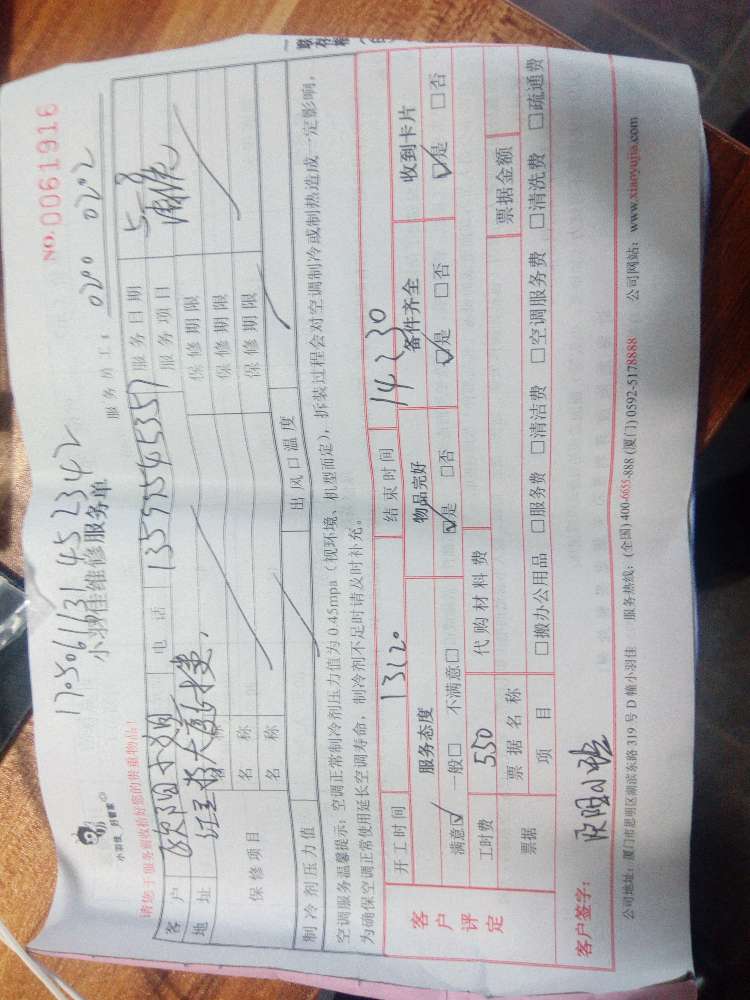 17050616314523 42
NO.0061916
小羽佳 好管家
小羽佳维修服务单
服务员工: 0290 0202
请您于服务前收拾好您的贵重物品!
客户 欧阳小姐 电话 13559545357 服务日期 5-8
地址 服务项目
保修项目 名称 保修期限
名称 保修期限
名称 保修期限
制冷剂压力值 出风口温度
空调服务温馨提示: 空调正常制冷剂压力值为0.45mpa (视环境、机型而定), 拆装过程会对空调制冷或制热造成一定影响,
为确保空调正常使用延长空调寿命, 制冷剂不足时请及时补充。
客户评定
开工时间 13:20 结束时间 14:30
服务态度 物品完好 备件齐全 收到卡片
满意☑ 一般□ 不满意□ ☑是 □否 ☑是 □否 ☑是 □否
工时费 550 代购材料费
票据 票据名称 票据金额
项目 □搬办公用品 □服务费 □清洁费 □空调服务费 □清洗费 □疏通费
客户签字: 欧阳小姐
公司地址: 厦门市思明区湖滨东路319号D幢小羽佳 服务热线: (全国) 400-6655-888 (厦门) 0592-5178888 公司网站: www.xiaoyujia.com